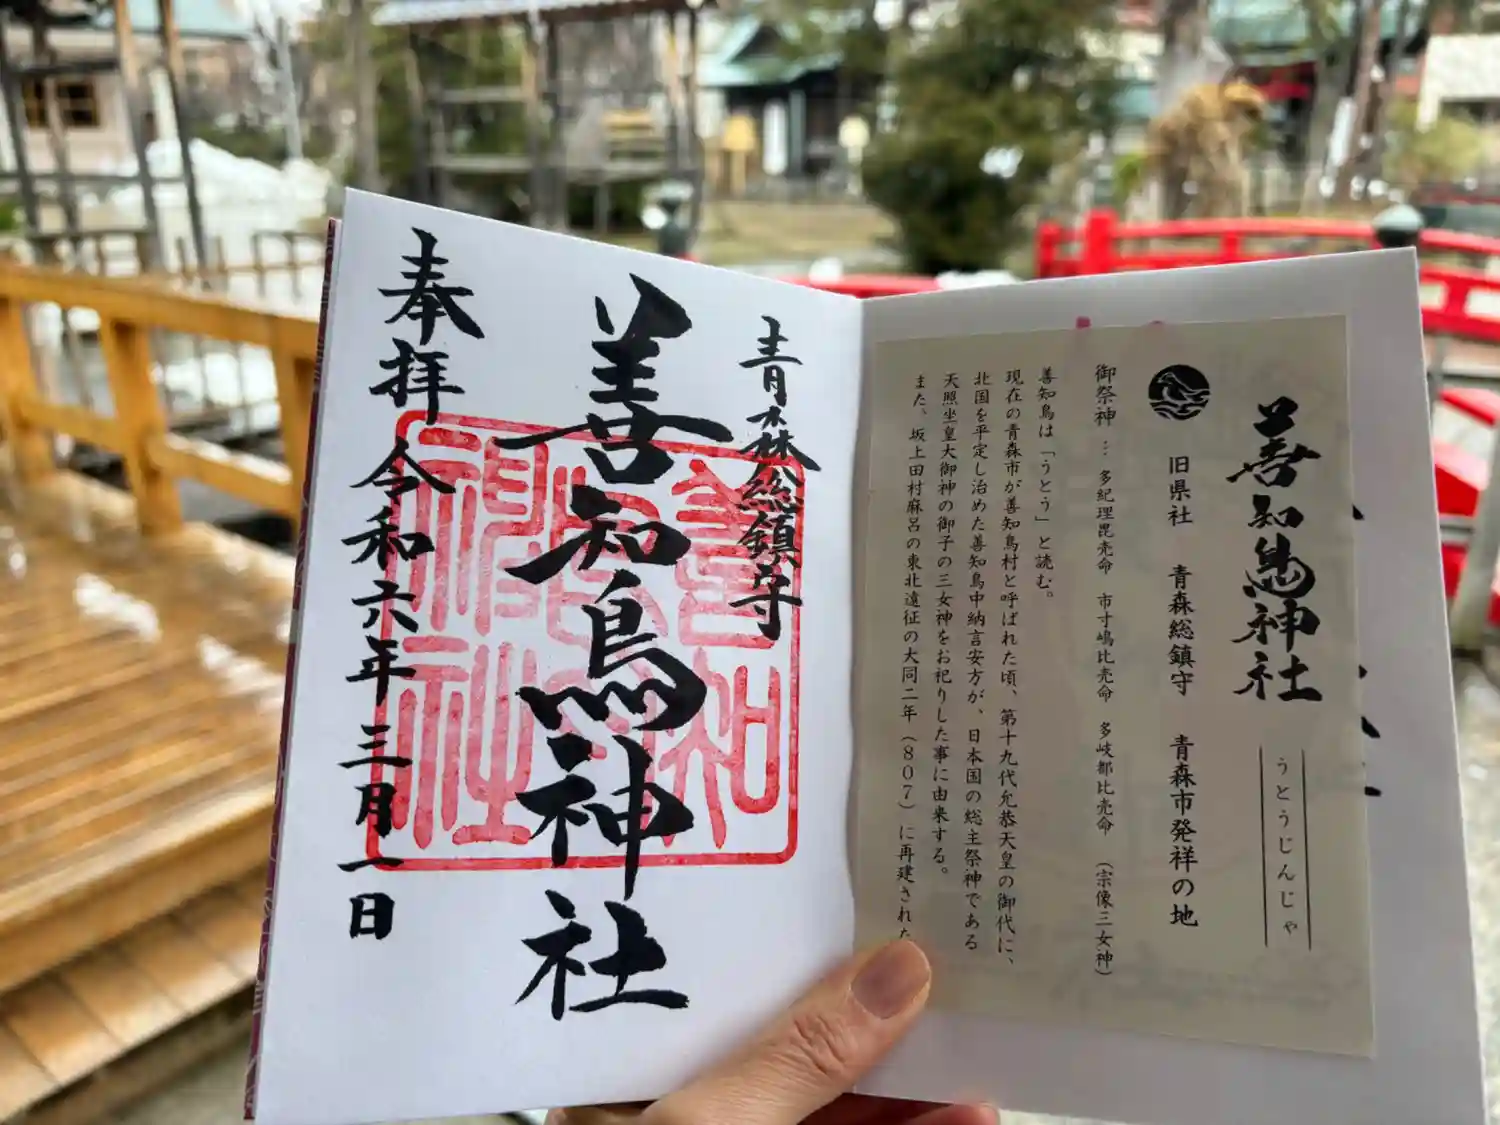 善知鳥神社
うとうじんじゃ
旧県社 青森総鎮守 青森市発祥の地
御祭神 … 多紀理毘売命 市寸嶋比売命 多岐都比売命 (宗像三女神)
善知鳥は「うとう」と読む。
現在の青森市が善知鳥村と呼ばれた頃、第十九代允恭天皇の御代に、
北国を平定し治めた善知鳥中納言安方が、日本国の総主祭神である
天照坐皇大御神の御子の三女神をお祀りした事に由来する。
また、坂上田村麻呂の東北遠征の大同二年(807)に再建された
青森総鎮守
善知鳥神社
奉拝 令和六年三月一日
善知
神社